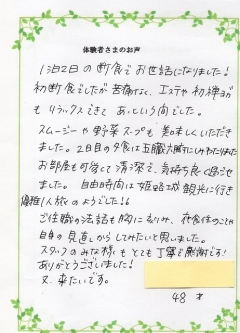 体験者さまのお声
1泊2日の断食でお世話になりました!
初断食でしたが苦痛なく、エステや初禅が
もリラックスできて あっという間でした。
スムージーや野菜スープも美味しくいただき
ました。2日目の夕食は五臓六腑にしみわたりました
お部屋も可愛くて清潔で、気持ち良く過ごせ
ました。自由時間は姫路城観光に行き
優雅な1人旅のようでした!!
ご住職の法話も胸に 衣食住のことや
自身の見直しからしてみたいと思いました。
スタッフのみな様もとても丁寧で感謝です!
ありがとうございました!
又、来たいです。
48 才